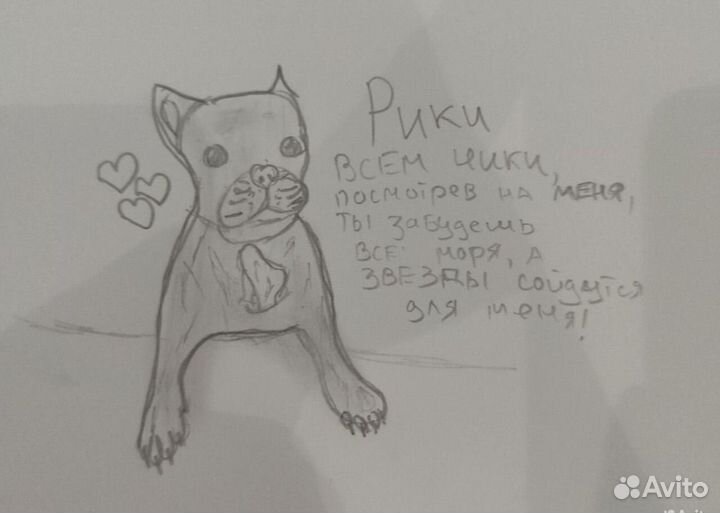 Рики
ВСЕМ ЧИКИ,
посмотрев на меня,
ты забудешь
все моря, а
ЗВЕЗДЫ сойдутся
для меня!
Avito